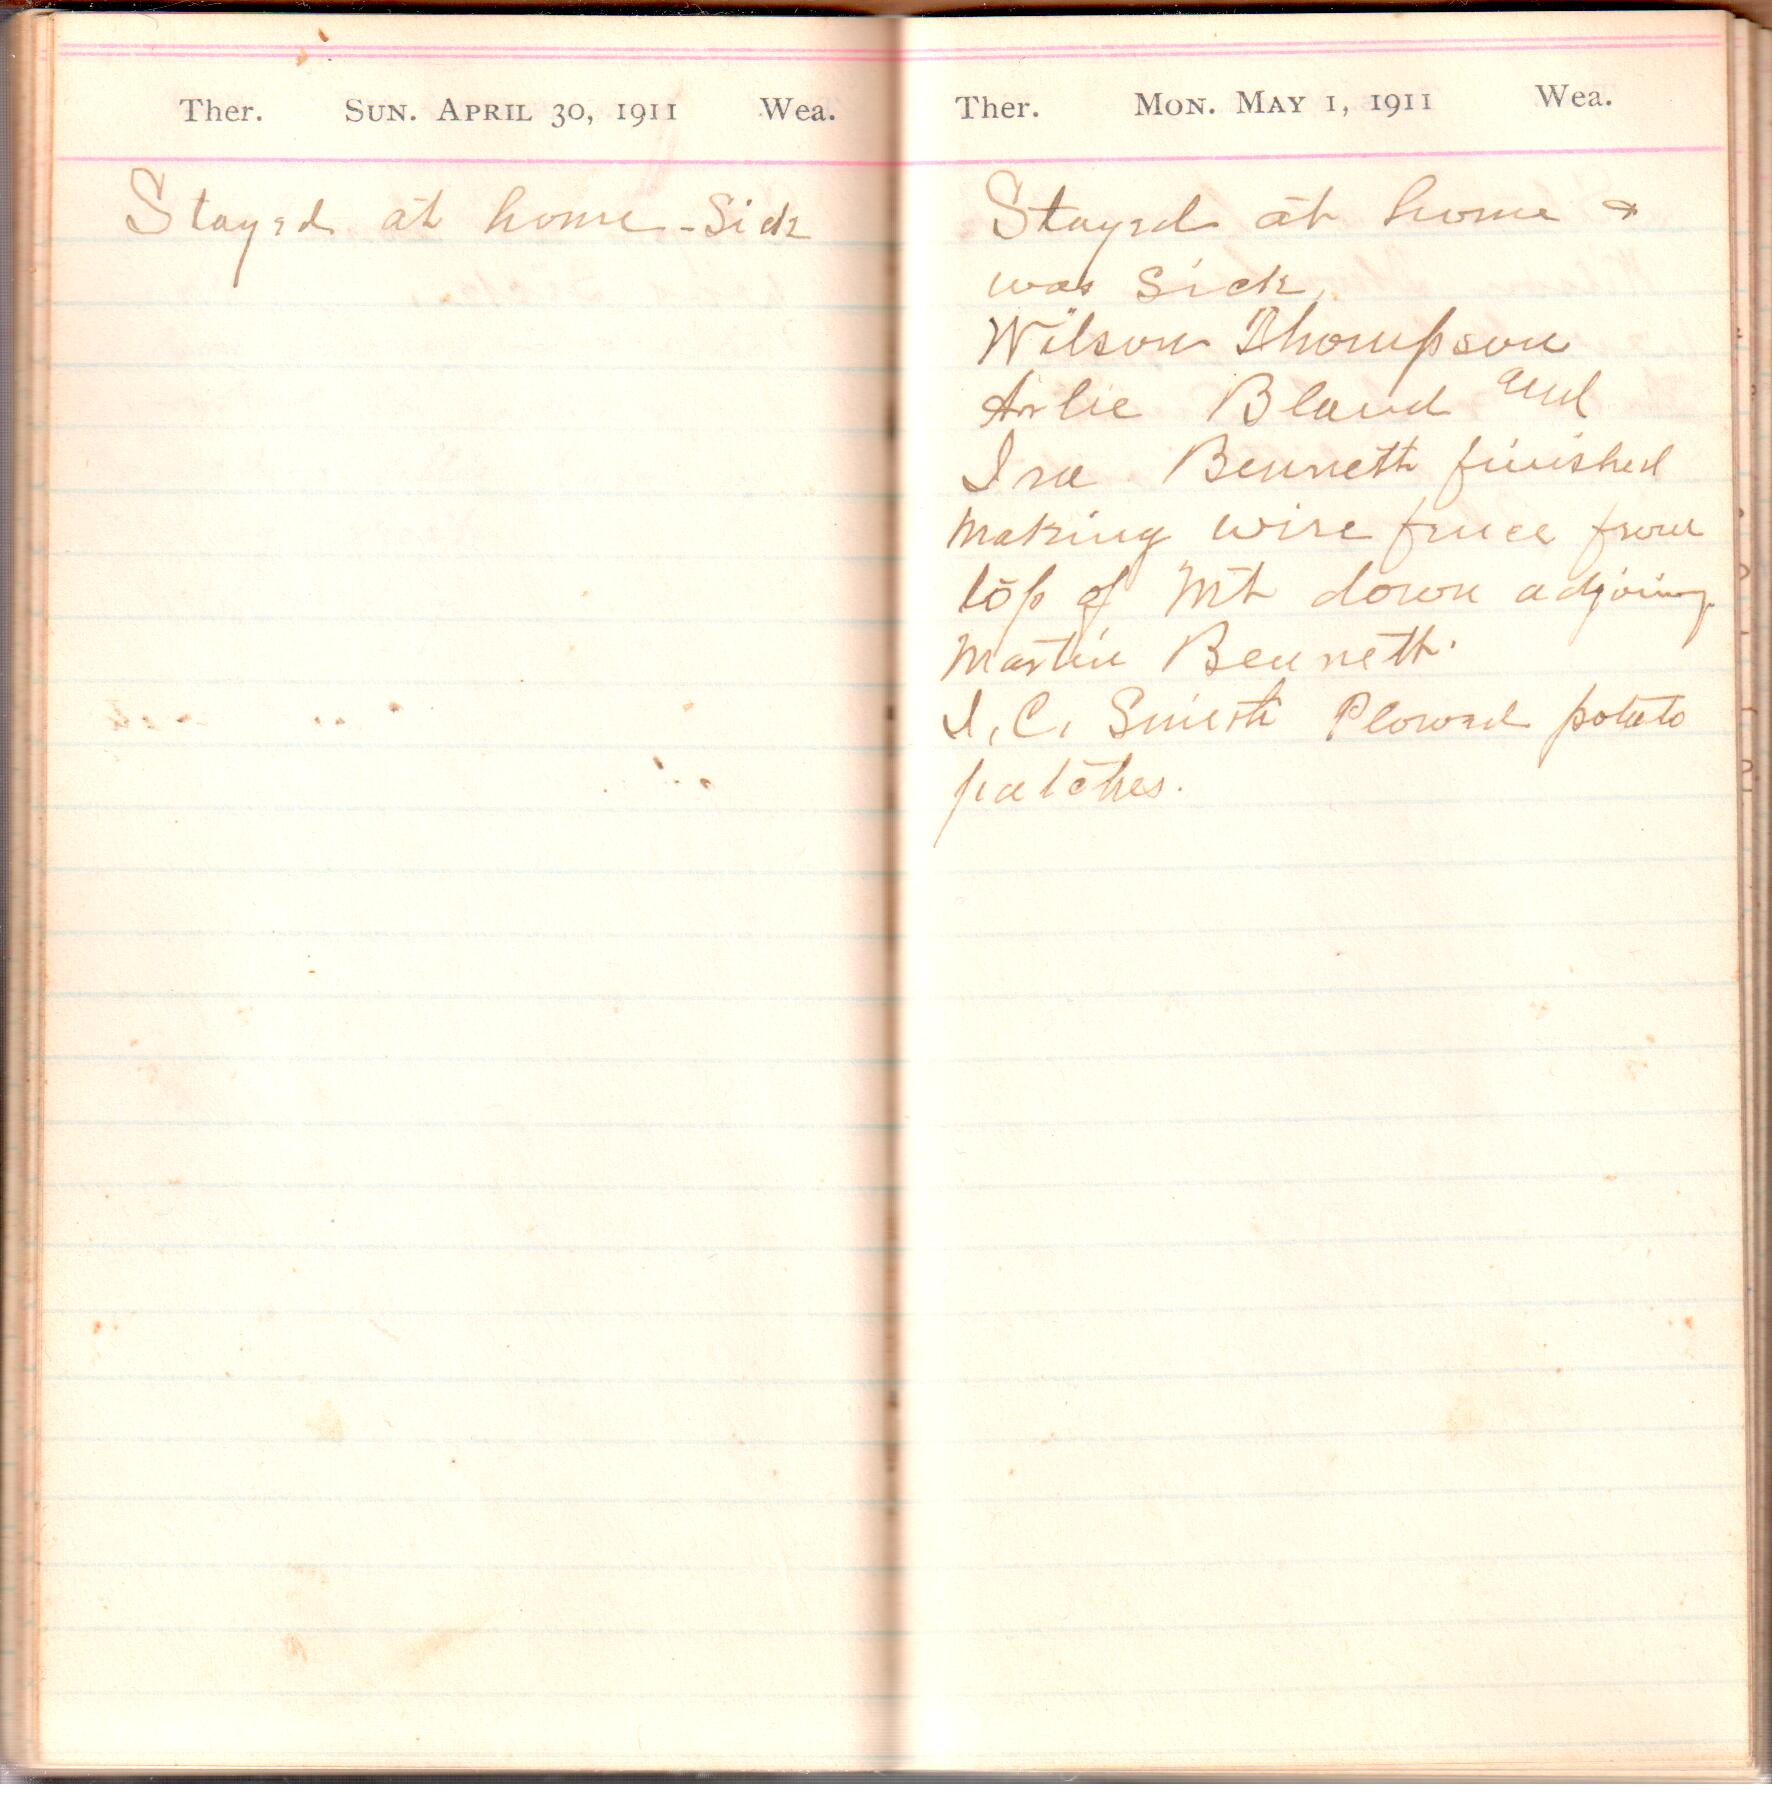 Ther. Sun. April 30, 1911 Wea.
Stayed at home - Sick
Ther. Mon. May 1, 1911 Wea.
Stayed at home &
was sick.
Wilson Thompson
Arlie Bland and
Ira Bennett finished
making wire fence from
top of Mt down adjoing
Martin Bennett.
I. C. Smith Plowed potato
patches.